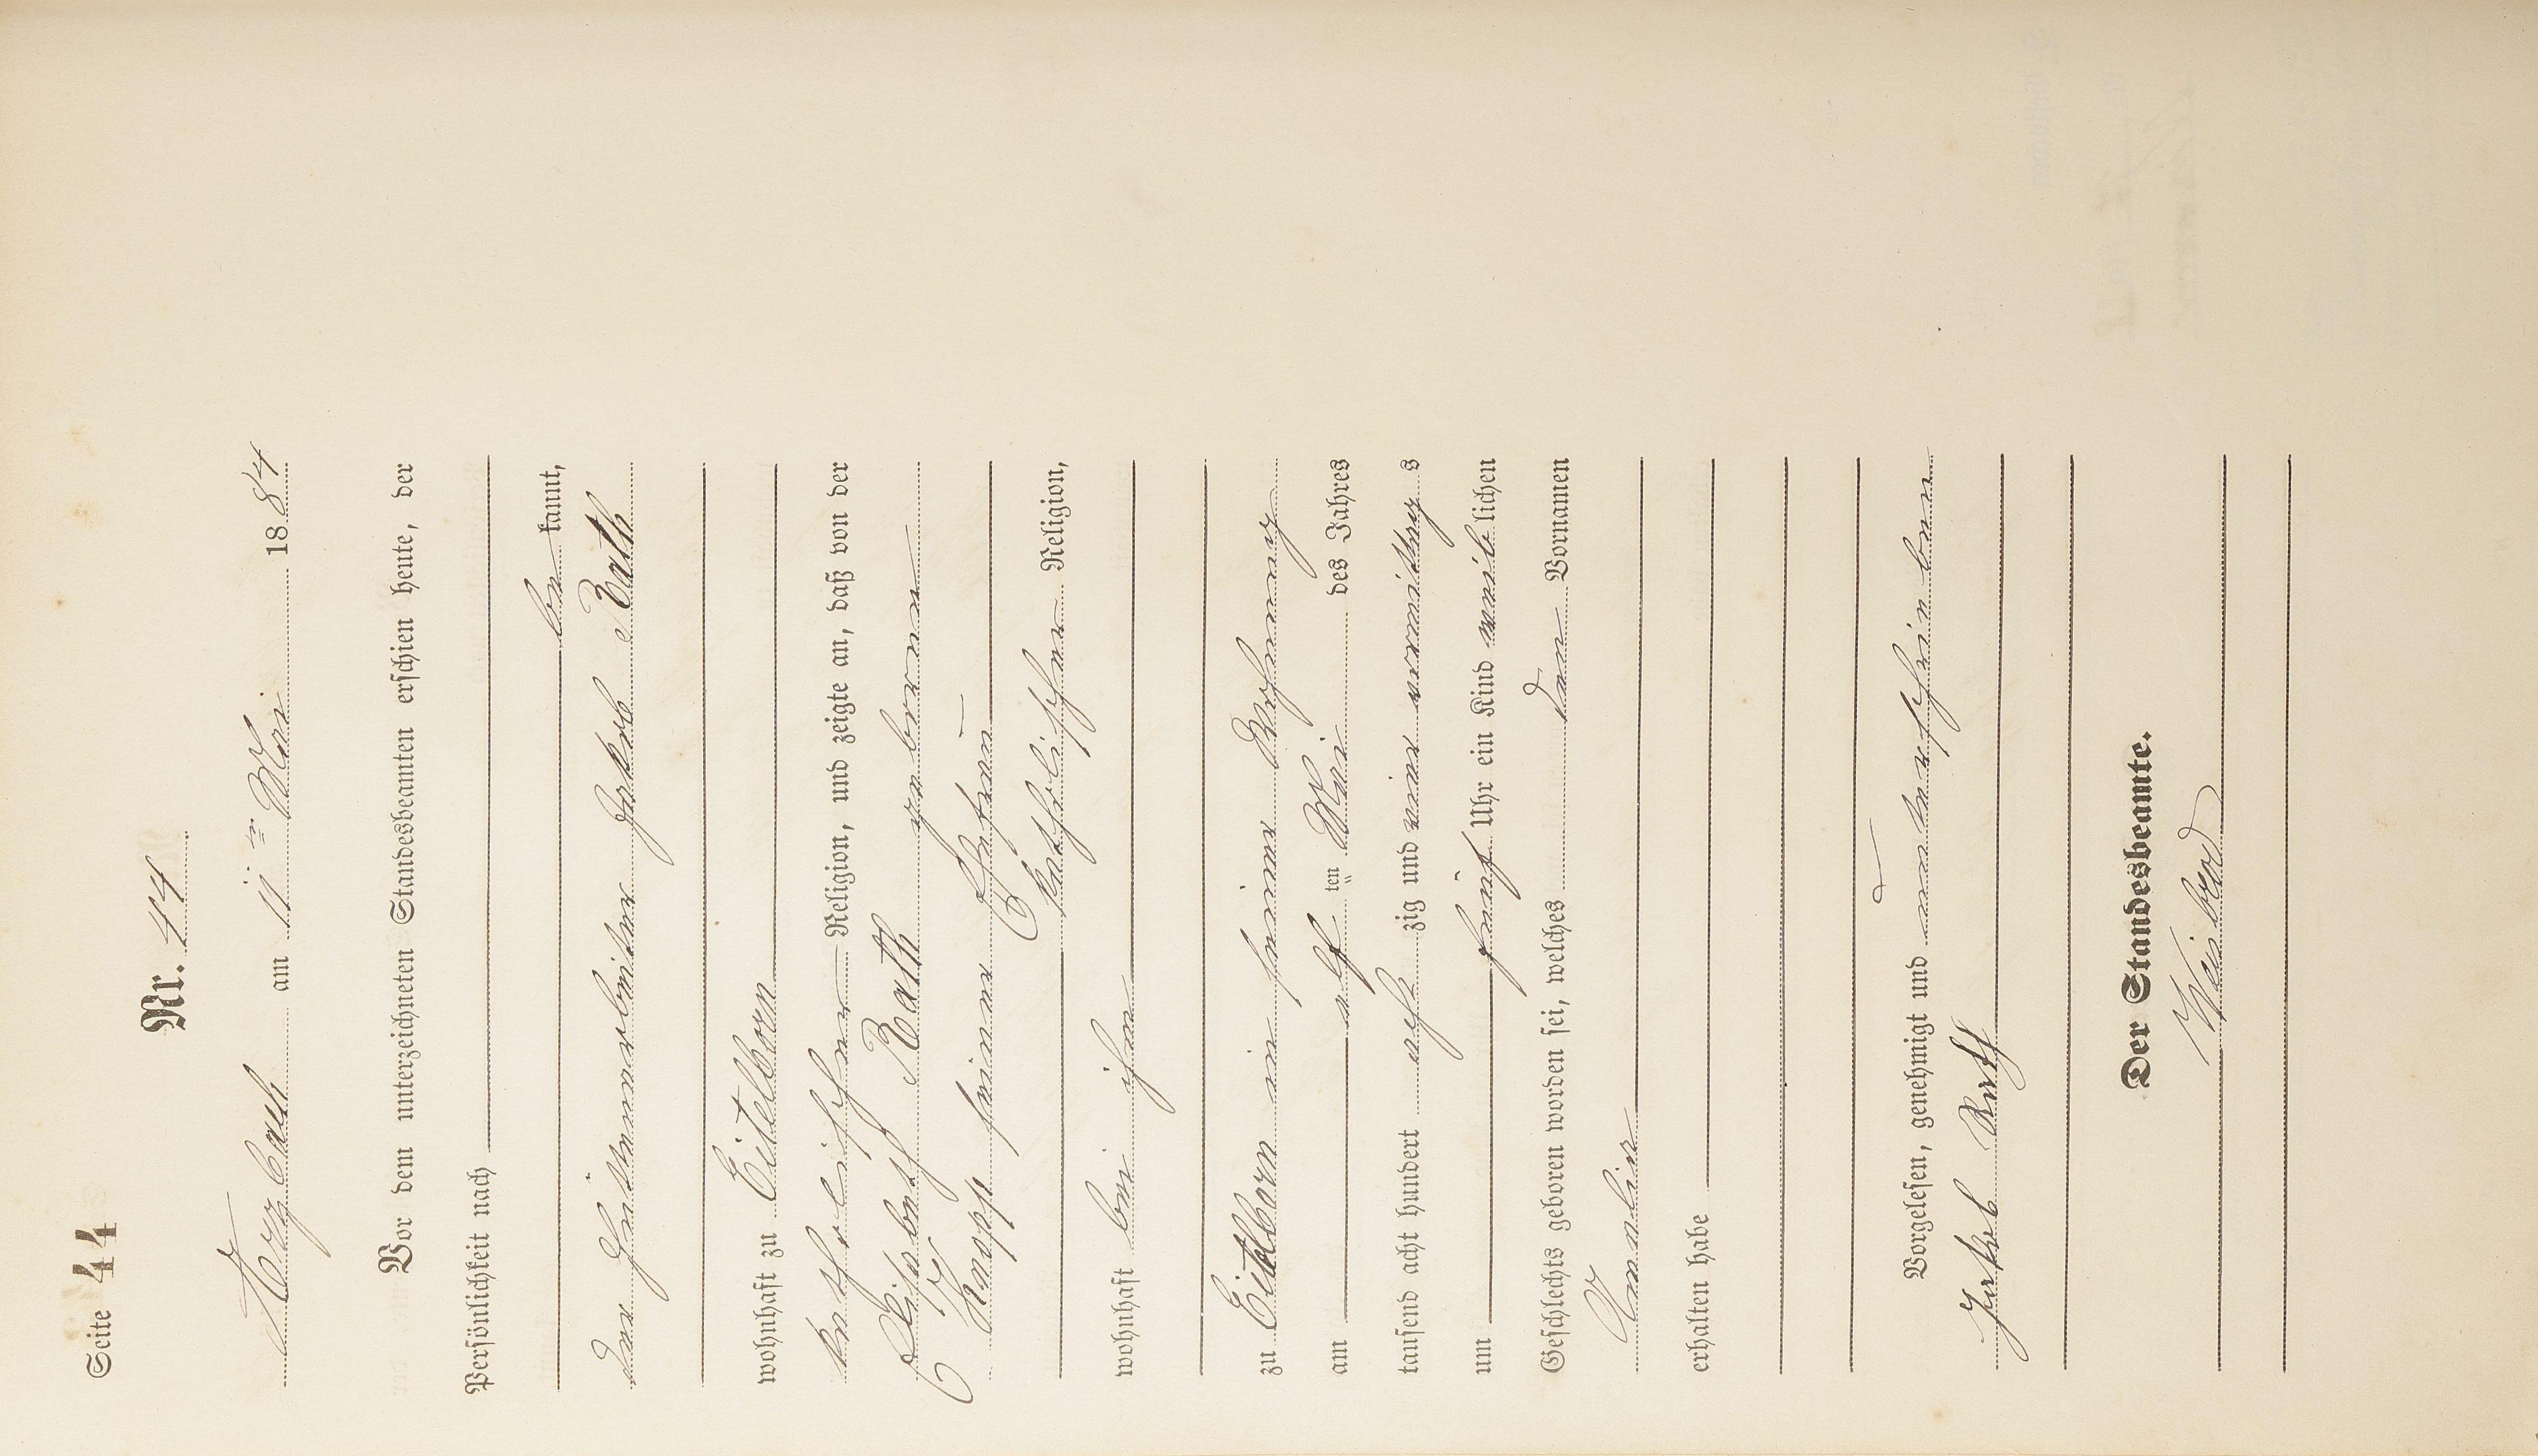 Seite 44
Nr. 44
am 11 ten Mai 1884
Vor dem unterzeichneten Standesbeamten erschien heute, der
Persönlichkeit nach
be kannt,
der Hüttenarbeiter Jakob Rath
wohnhaft zu Eitelborn
katholischer Religion, und zeigte an, daß von der
Elisabeth Rath geborenen
Knopp seiner Ehefrau
katholischer Religion,
wohnhaft bei ihm
zu Eitelborn in seiner Wohnung
am elf ten Mai des Jahres
tausend acht hundert acht zig und vier vormittag s
um fünf Uhr ein Kind weib lichen
Geschlechts geboren worden sei, welches den Vornamen
Amalie
erhalten habe
Vorgelesen, genehmigt und unterschrieben
Jakob Rath
Der Standesbeamte.